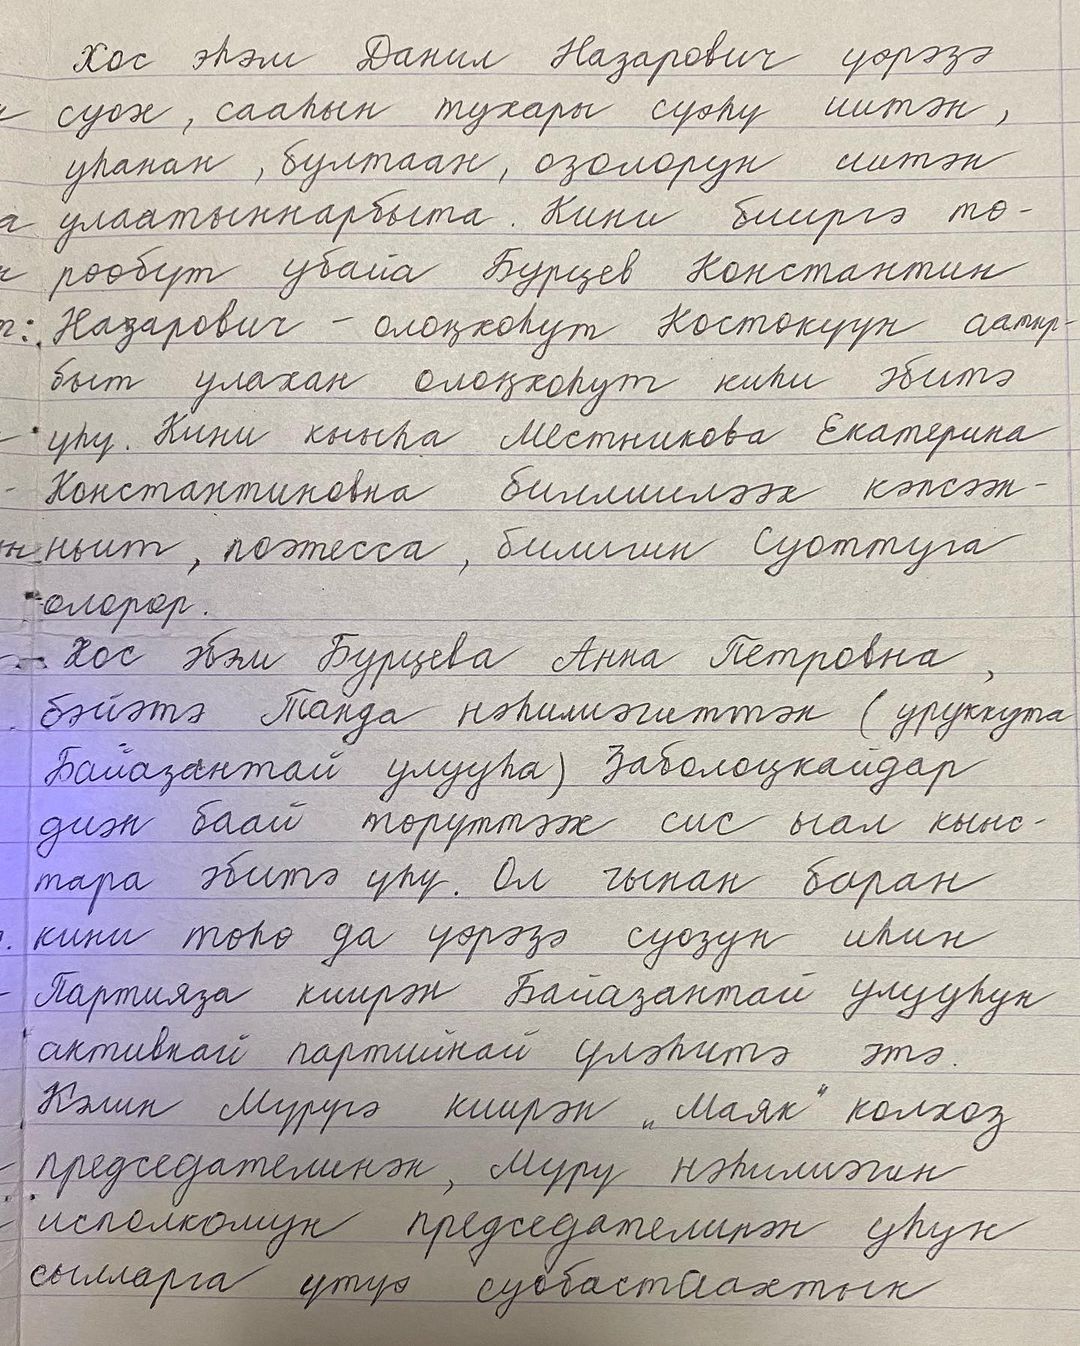 Хос эһэм Данил Назарович үөрэҕэ
суох, сааһын тухары сүөһү иитэн,
уһанан, бултаан, оҕолорун иитэн
улаатыннарбыта. Кини бииргэ тө-
рөөбүт убайа Бурцев Константин
Назарович – олоҥхоһут Костокуун аатыр-
быт улахан олоҥхоһут киһи эбитэ
үһү. Кини кыыһа Местникова Екатерина
Константиновна биллиилээх кэпсээн-
ньит, поэтесса, билигин Суоттуга
олорор.
Хос эбэм Бурцева Анна Петровна,
бэйэтэ Танда нэһилиэгиттэн (урукккута
Байаҕантай улууһа) Заболоцкайдар
диэн баай төрүттээх сис ыал кыыс-
тара эбитэ үһү. Ол гынан баран
кини төһө да үөрэҕэ суоҕун иһин
Партияҕа киирэн Байаҕантай улууһун
активнай партийнай үлэһитэ этэ.
Кэлин Мүрүгэ киирэн „Маяк" колхоз
председателинэн, Мүрү нэһилиэгин
исполкомун председателинэн уһун
сылларга үтүө суобастаахтык